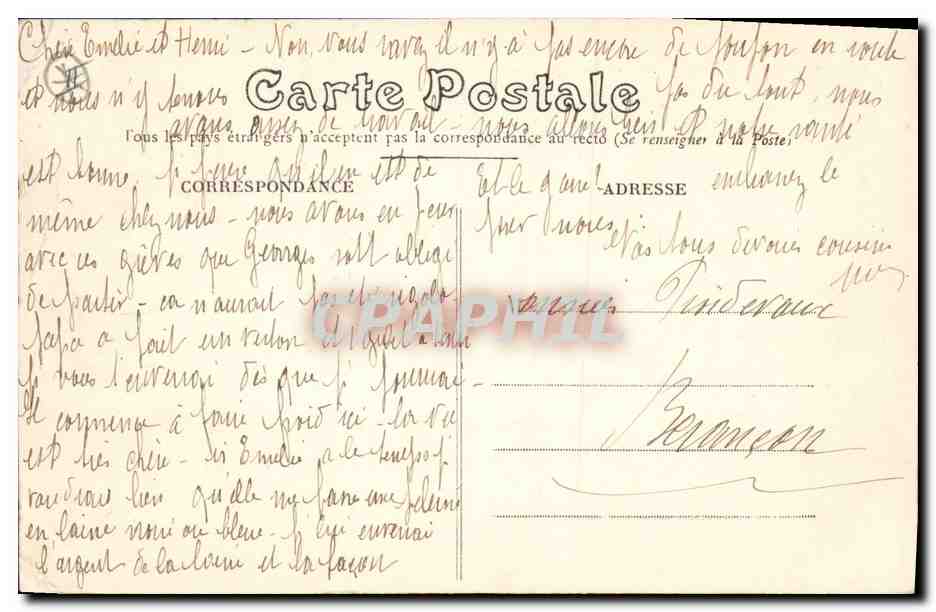 Chère Emelie et Henri - Non, vous savez il n'y a pas encore de en route
et nous n'y pas du tout, nous
Carte Postale
avons de travail - nous allons bien et notre santé
Tous les pays étrangers n'acceptent pas la correspondance au recto (Se renseigner à la Poste)
est bonne, j'espère qu'il en est de
CORRESPONDANCE
même chez nous - nous avons eu peur
avec ces grèves que Georges soit obligé
de partir - ça n'aurait pas été rigolo -
papa a fait un
CPAPHIL
je vous l'enverrai dès que je pourrai -
Il commence à faire froid ici - la vie
est très chère - si Emelie a le temps je
voudrais bien qu'elle me fasse une pélerine
en laine noire ou bleue - je lui enverrai
l'argent de la laine et la façon
Et le gone!
ADRESSE
embrassez le
pour nous
Vos tous dévoués cousins
Besançon